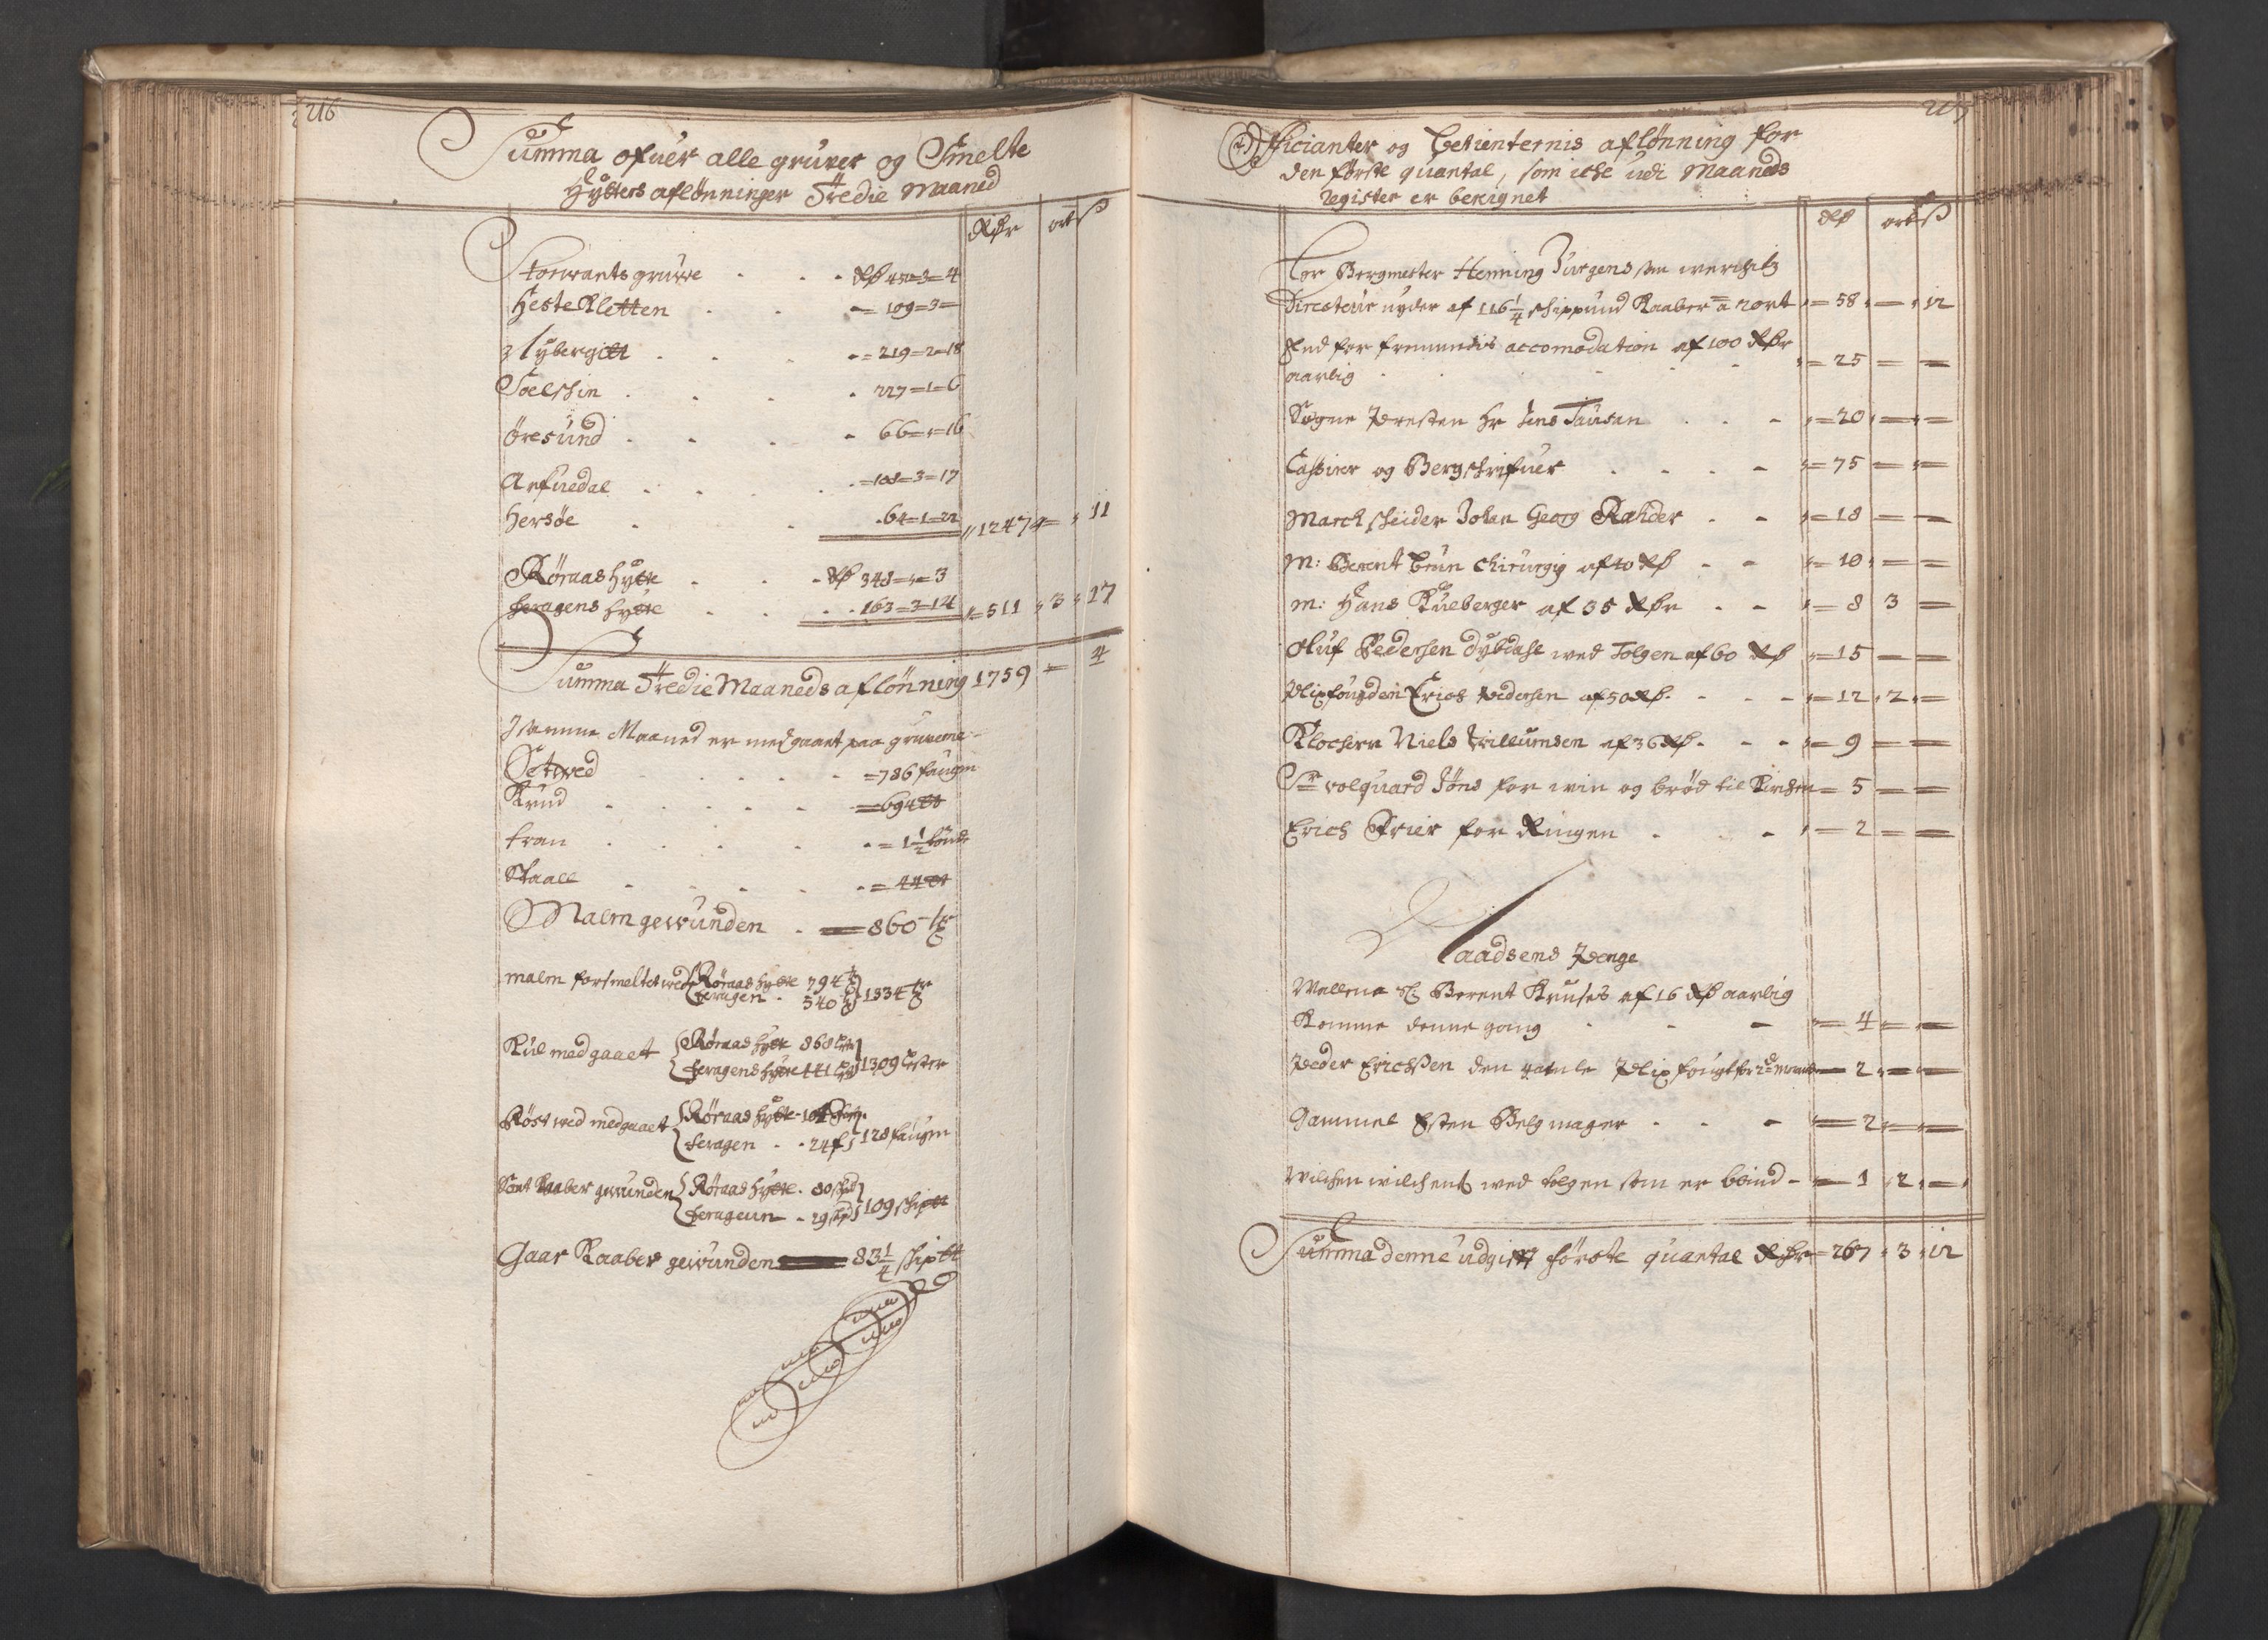 216
Summa ofuer alle gruver og Smelte
Hytters aflønninger Tredie Maaned
Rdr ort ß
Storwarts gruwe - - - Rd 451=3=4
Heste Kletten - - - = 109=3=
Nyberget - - - = 219=2=18
Soelskin - - - 227=1=6
Øresund - - - 66=,=16
Arfuedal - - - =108=3=17
Hersøe - - 64=1=22 ,,1247 = , 11
Røraas hytte - - - Rd 348=,=3
Feragens hytte - - - 163=3=14 ,,=511 , 3 , 17
Summa Tredie Maaneds aflønning 1759 = 4
I samme Maaned er medgaaet paa gruverne
Setwed - - - - =786 faugn
Krud - - - - =694 ℔
tran - - - - = 1½ tønde
Staall - - - - = 44 ℔
Malm gewunden - = 860 tr
malm forsmeltet wed Røraas hytte 794 tr
Feragen - 540 tr 1334 tr
Kul medgaaet Røraas hytte 868 lester
Feragens hytte 441 1309 Lester
Røst wed medgaaet Røraas hytte - 104 faugn
Feragen - - 24 f 128 faugn
Sort Kaaber gewunden Røraas hytte - 80 schip℔
Feragenn - 29 schip℔ 109 schip℔
Gaar Kaaber gewunden = 83¼ schip℔
217
Officianter og betienternis aflønning for
den første quartal, som iche udi Maaneds
Register er berignet
Rd ort ß
Hr Bergmester Henning Jurgenssen
Directeur nyder af 116¼ schippund Kaaber a 2 ort ,= 58 , = , 12
End for fremmedis accomodation af 100 Rdr
aarlig - - - - ,= 25 = =
Sogne Presten Hr Jens Tausan - - - ,= 20 , = , =
Cassirer og Bergschrifuer - - - - ,= 75 = , =
Marchscheider Johan Georg Rahder - - ,= 18 = =
M: Berent Brun Chirurgij af 40 Rd - - ,= 10 , = =
M: Hans Kueberger af 35 Rdr - - ,= 8 3 =
Oluf Pedersen Dybdahl wed Tolgen af 60 Rd ,= 15 = =
Plixfougden Erich Pedersen af 50 Rd. - - - ,= 12 , 2 , =
Klocheren Niels Willumsen af 36 Rd. - - - ,= 9 = =
Sr Volquard Jøns for win og brød til Kirchen = 5 = =
Erich Frier for Ringen - - - , = 2 = =
Naadsens Penge
Mallene Sl: Berent Kruses af 16 Rd aarlig
Komme denne gang - - - ,= 4 = =
Peder Erichßen den gamle Plixfougt for 2de Maaneder = 2 , = =
Gammel Esten Belgmager - - - = 2 = =
Wilchen wilchens wed tolgen som er blind - = 1 , 2 , = ,
Summa denne udgift første quartal Rdr = 267 , 3 , 12